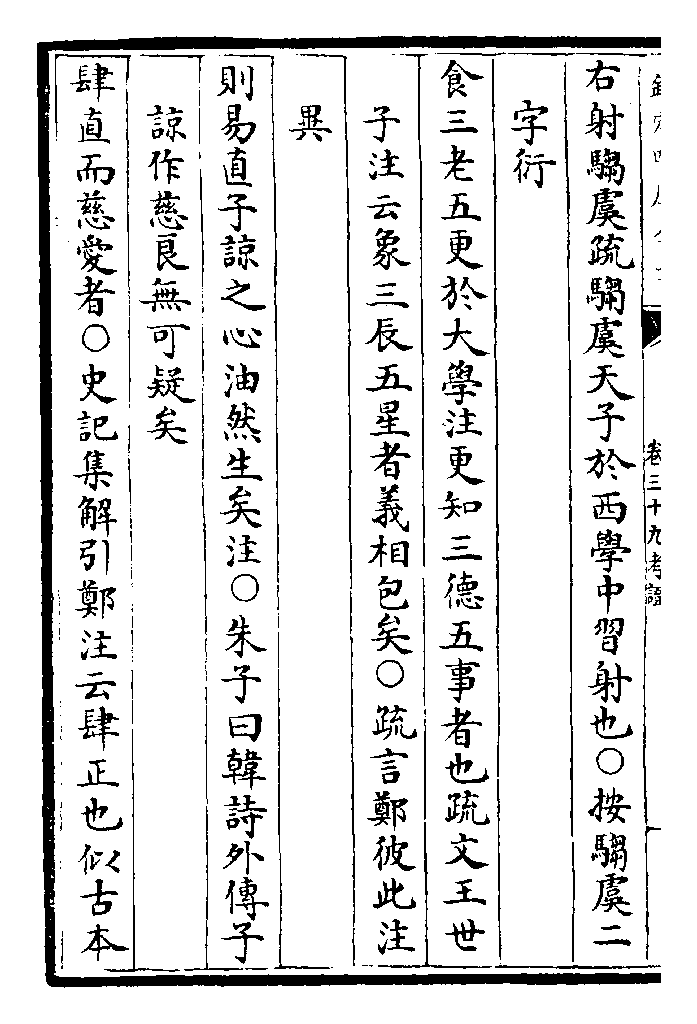 卷三十九考證
右射騶虞疏騶虞天子於西學中習射也○按騶虞二
字衍
食三老五更於大學注更知三德五事者也疏文王世
子注云象三辰五星者義相包矣○疏言鄭彼此注
異
則易直子諒之心油然生矣注○朱子曰韓詩外傳子
諒作慈良無可疑矣
肆直而慈愛者○史記集解引鄭注云肆正也似古本